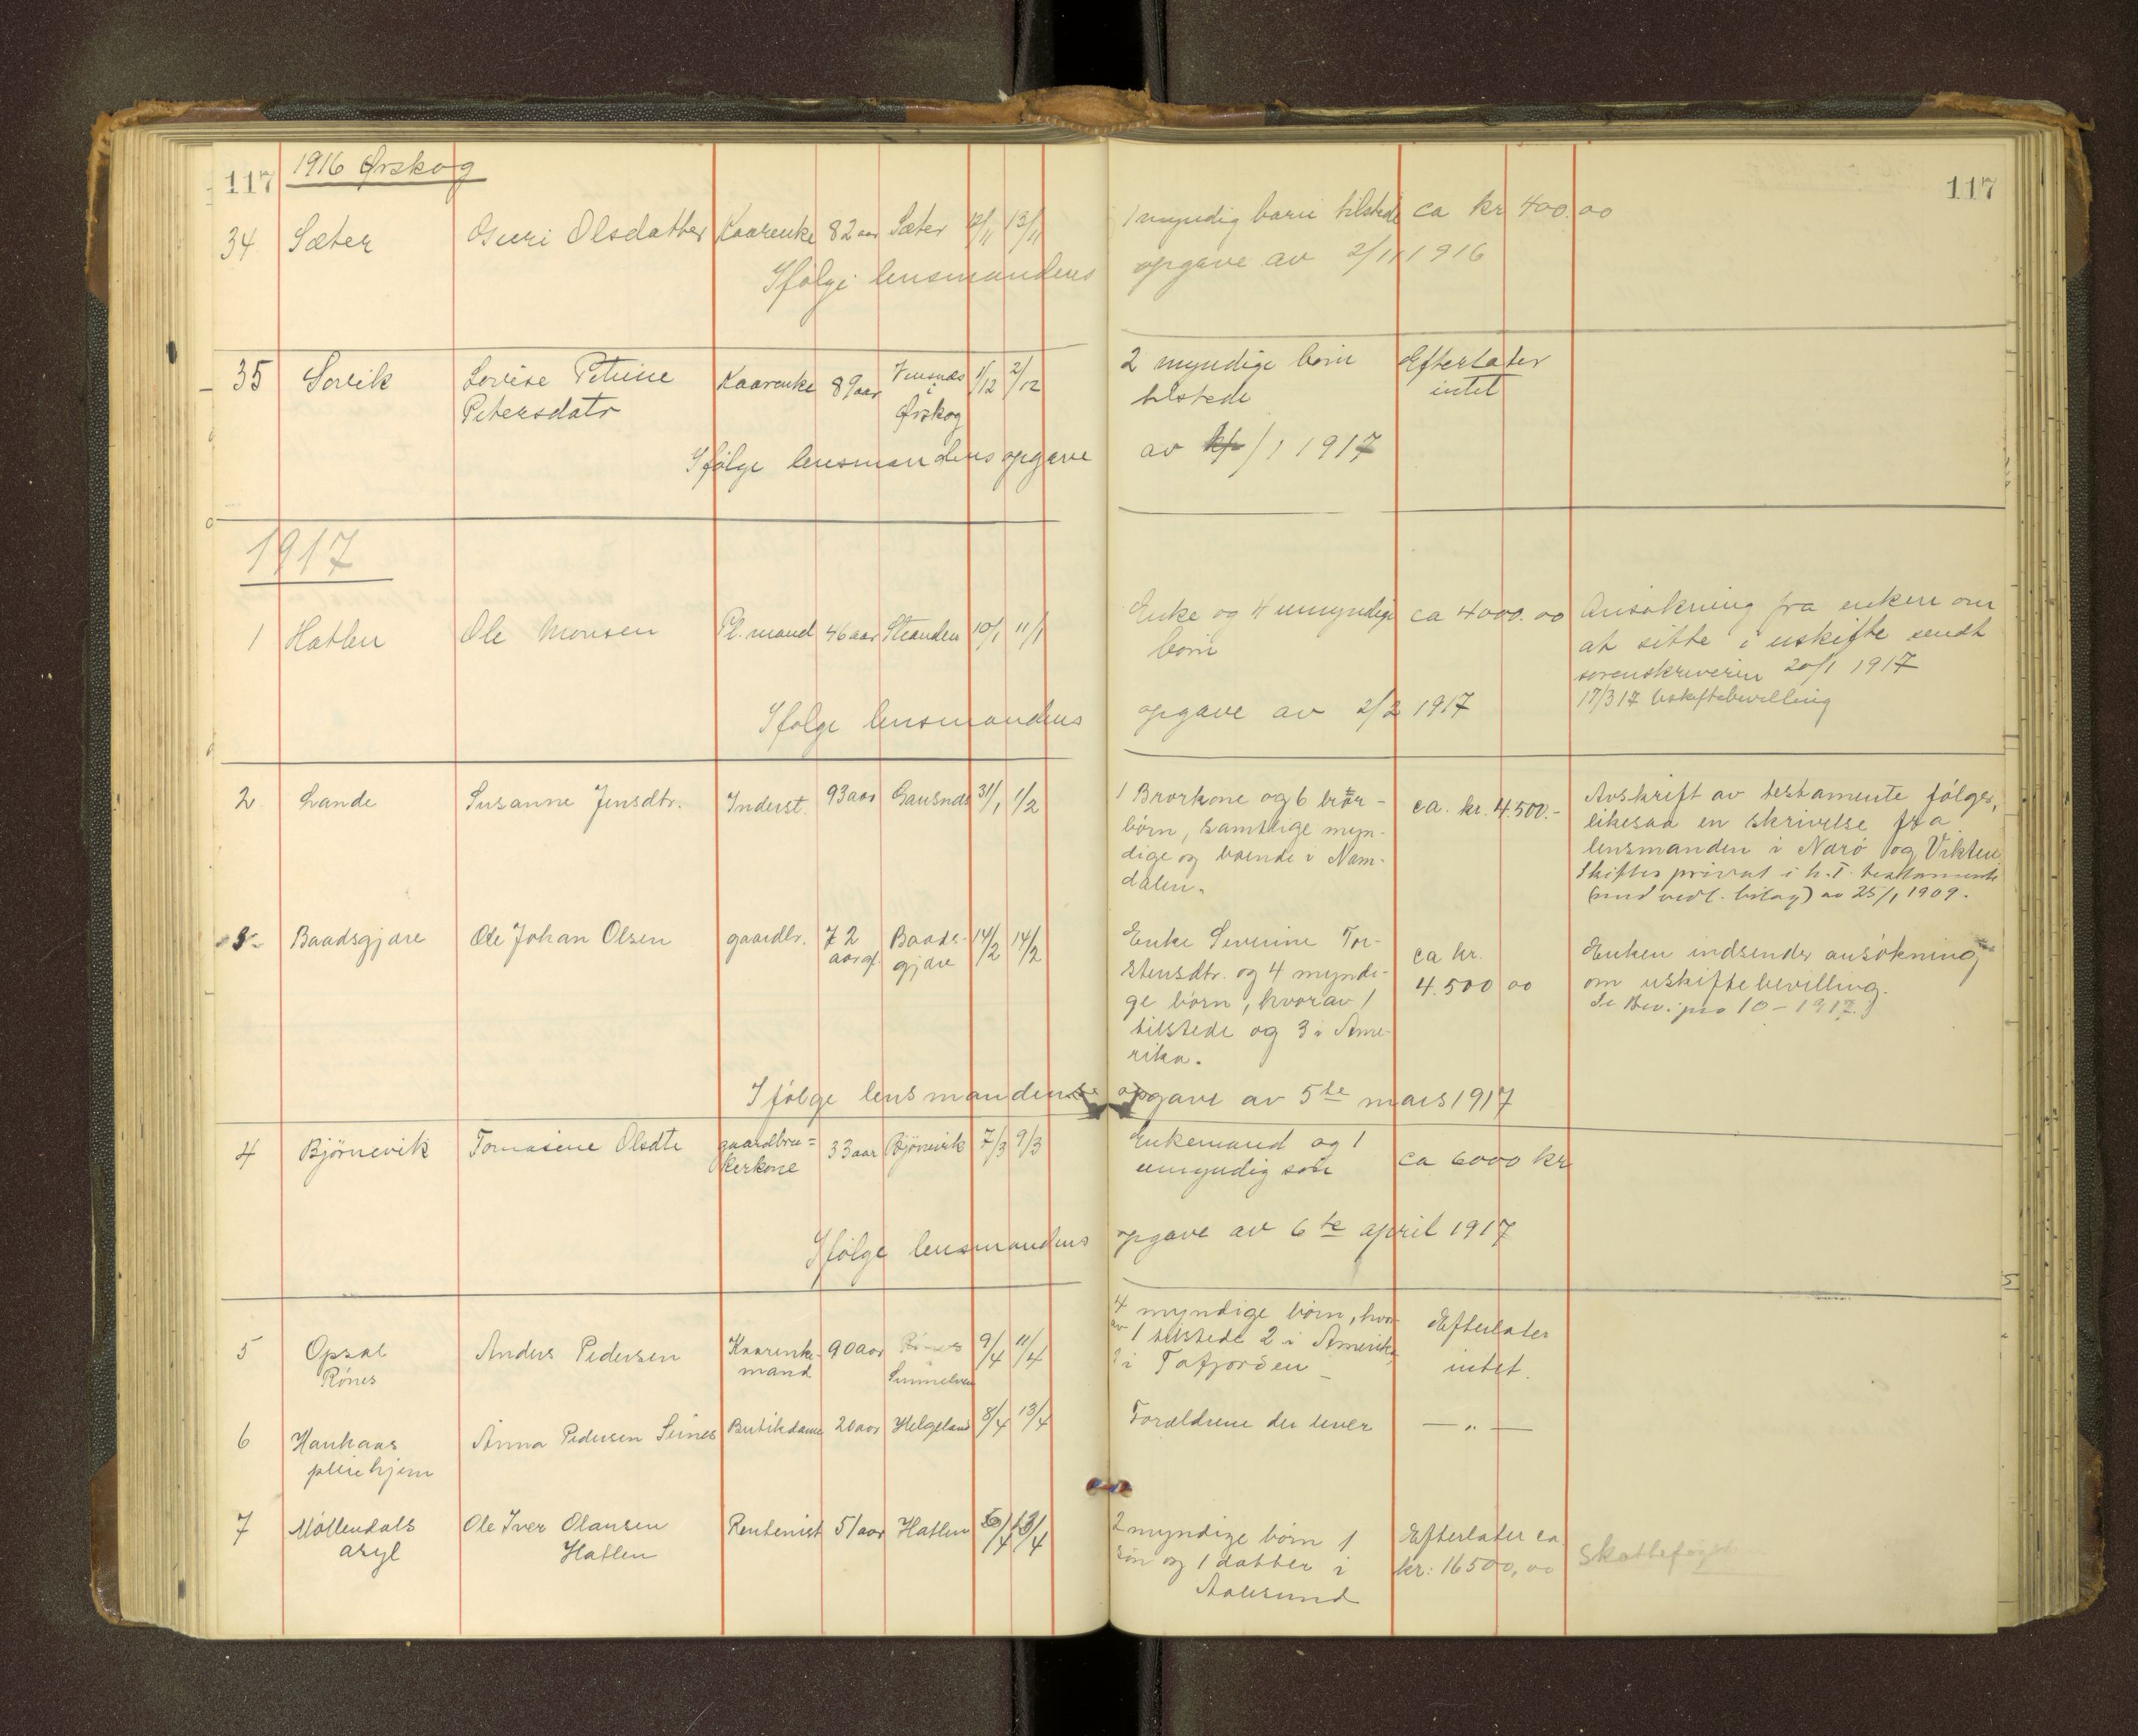 117 1916 Ørskog 117
34 Sæter Guri Olsdatter Kaarenke 82 aar Sæter 12/11 13/11 1 myndig barn tilstede ca kr 400.00
Ifølge lensmandens opgave av 2/11 1916
35 Sovik Lovise Petrine Kaarenke 89 aar i 1/12 2/12 2 myndige børn Efterlater
Petersdatr Ørskog tilstede intet
Ifølge lensmandens opgave av /1 1917
1917
1 Hatlen Ole Monsen Pl. mand 46 aar Stranden 10/1 11/1 Enke og 4 umyndige ca 4000.00 Ansøkning fra enken om
børn at sitte i uskifte sendt
sorenskriveren 20/1 1917
17/3 17 Uskiftebevilling
Ifølge lensmandens opgave av 2/2 1917
2 Lande Susanne Jensdtr. Inderst. 93 aar Gausnæs 31/1 1/2 1 Brorkone og 6 bror- ca. kr. 4.500.- Avskrift av testamente følger,
børn, samtlige myn- likesaa en skrivelse fra
dige og boende i Nam- lensmanden i Nærø og Vikten
dalen. Skiftes privat i h. t. testamente
(med vedl. bilag) av 25/1 1909.
3 Baadsgjære Ole Johan Olsen gaardbr. 72 Baads- 14/2 14/2 Enke Severine Tor- ca kr. Enken indsender ansøkning
aar gl. gjære stensdtr. og 4 myndi- 4.500 00 om uskiftebevilling.
ge børn, hvorav 1 Se Bev. pro 10 - 1917.
tilstede og 3 i Ame-
rika.
Ifølge lensmandens opgave av 5te mars 1917
4 Bjørnevik Tomasine Olsdtr gaardbru= 33 aar Bjørnevik 7/3 9/3 Enkemand og 1 ca 6000 kr
kerkone umyndig søn
Ifølge lensmandens opgave av 6te april 1917
5 Opsal Anders Pedersen Kaarenke- 90 aar Rønes 9/4 11/4 4 myndige børn, hvor- Efterlater
Rønes mand Sunnelven av 1 tilstede 2 i Amerika, intet.
1 i Tafjorden
6 Hanhaas Anna Pedersen Seines Butikdame 20 aar Helgeland 8/4 13/4 Forældrene der lever — " —
pleiehjem
7 Møllendals Ole Iver Olausen Rentenist 51 aar Hatlen 6/4 13/4 2 myndige børn 1 Efterlater ca.
asyl Hatlen søn og 1 datter i kr: 16500,00 skattefogden
Aalesund